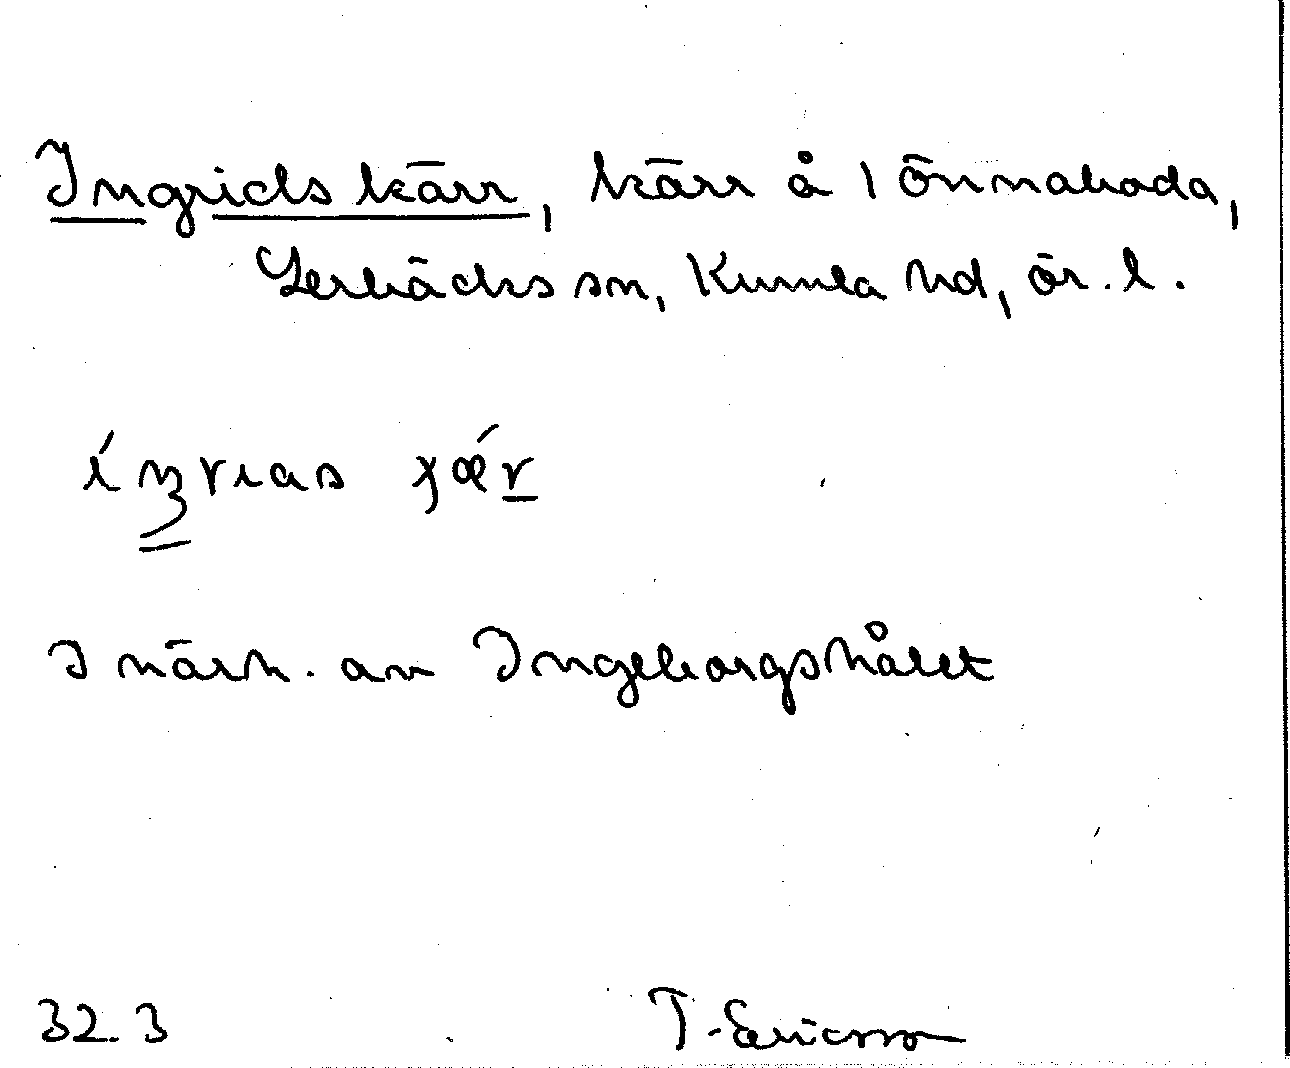 Ingridskärr, kärr å Lönnaboda,
Lerbäcks sn, Kumla hd, ör. l.
I närh. av Ingeborgshålet
32.3 T. Ericsson